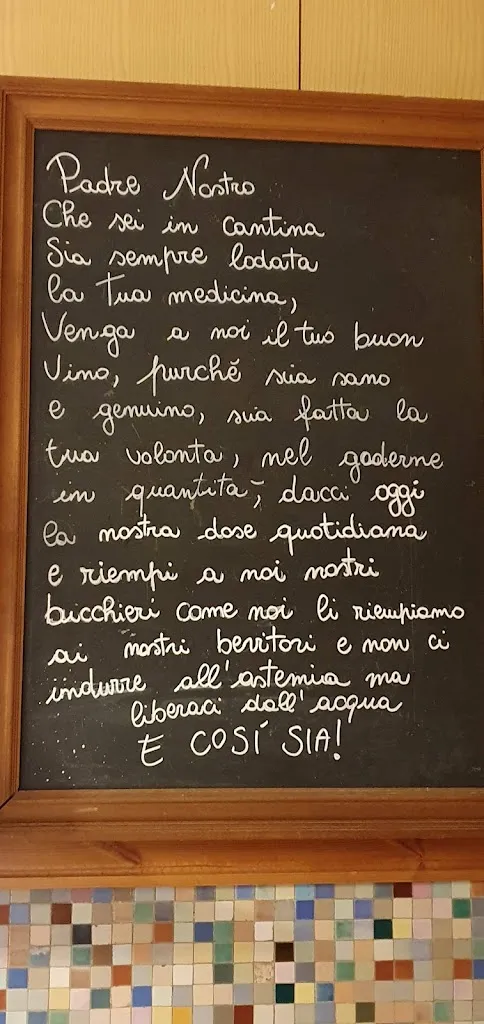 Padre Nostro
Che sei in cantina
Sia sempre lodata
la Tua medicina,
Venga a noi il tuo buon
Vino, purché sia sano
e genuino, sia fatta la
tua volonta, nel goderne
in quantità, dacci oggi
la nostra dose quotidiana
e riempi a noi nostri
bicchieri come noi li riempiamo
ai nostri bevitori e non ci
indurre all'astemia ma
liberaci dall'acqua
E COSÍ SIA!